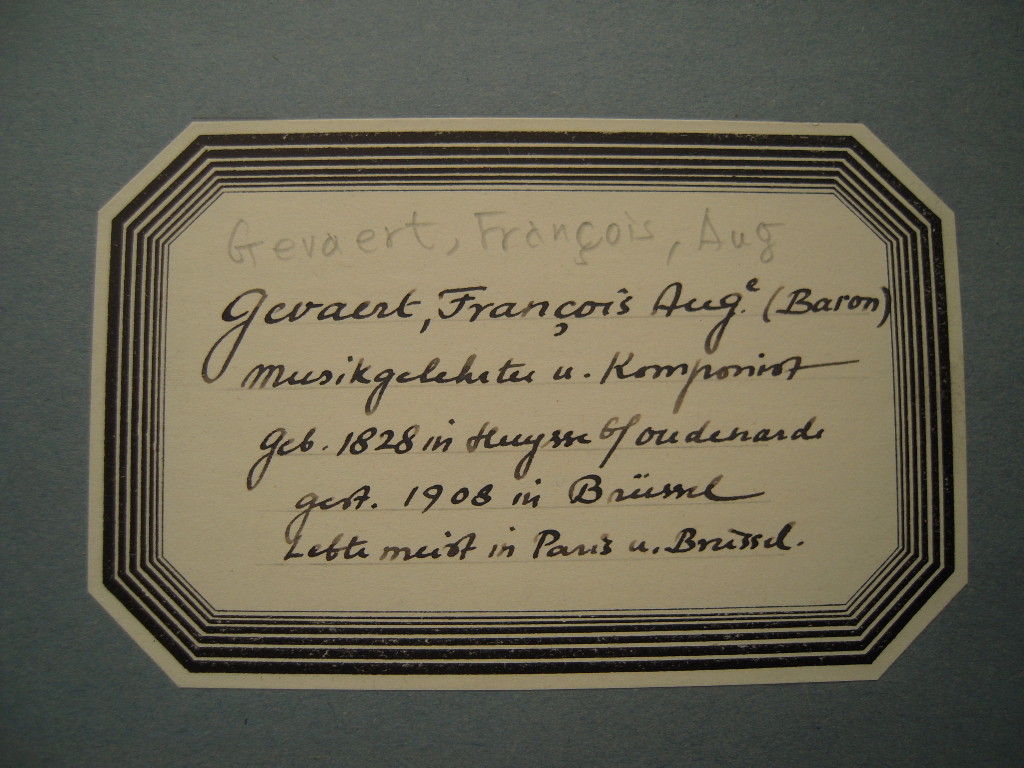 Gevaert, François, Aug
Gevaert, François Aug.e (Baron)
Musikgelehrter u. Komponist
geb. 1828 in Huysse b/ Oudenarde
gest. 1908 in Brüssel
Lebte meist in Paris u. Brüssel.